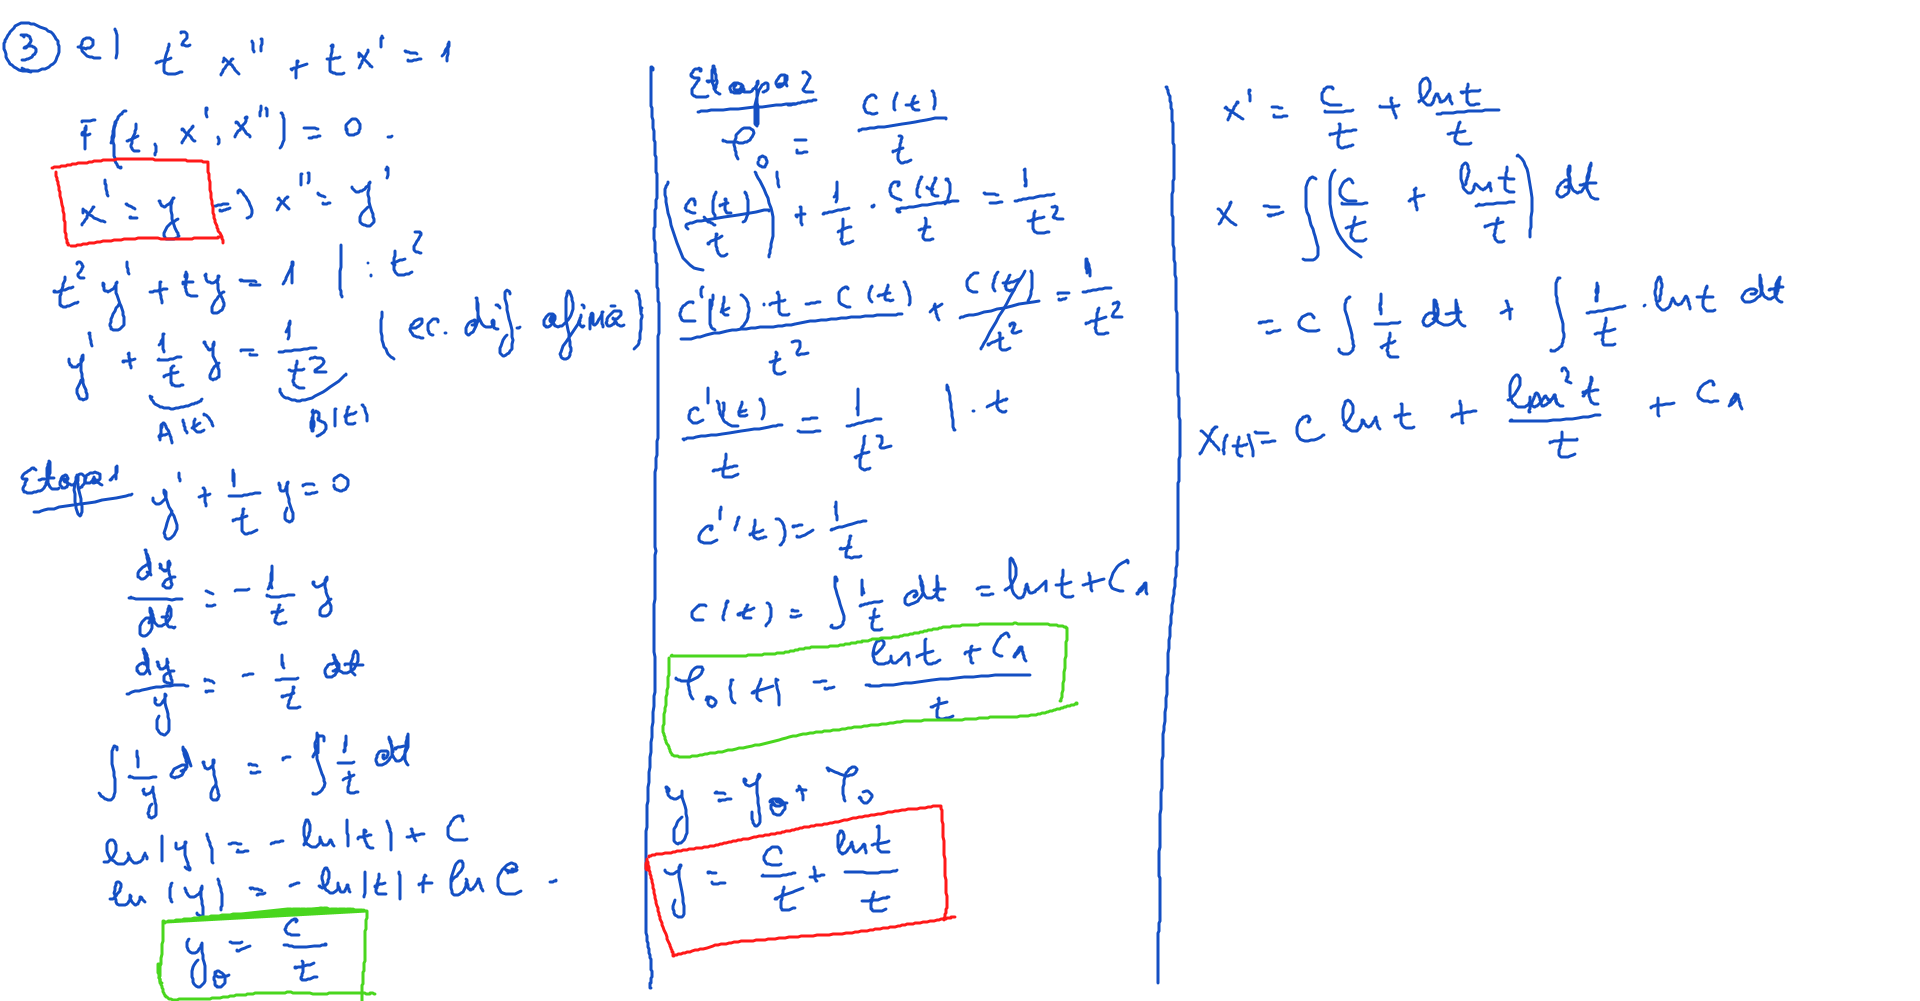 ③ e) t² x'' + t x' = 1
F(t, x', x'') = 0 .
x' = y => x'' = y'
t² y' + t y = 1 | : t²
y' + 1/t y = 1/t² (ec. dif. afină)
A(t) B(t)
Etapa 1 y' + 1/t y = 0
dy/dt = - 1/t y
dy/y = - 1/t dt
∫ 1/y dy = - ∫ 1/t dt
ln|y| = - ln|t| + C
ln|y| = - ln|t| + ln C .
y₀ = c/t
Etapa 2
φ₀ = c(t)/t
(c(t)/t)' + 1/t · c(t)/t = 1/t²
(c'(t)·t - c(t))/t² + c(t)/t² = 1/t²
c'(t)/t = 1/t² | · t
c'(t) = 1/t
c(t) = ∫ 1/t dt = ln t + C₁
φ₀(t) = (ln t + C₁)/t
y = y₀ + φ₀
y = c/t + ln t/t
x' = c/t + ln t/t
x = ∫ (c/t + ln t/t) dt
= c ∫ 1/t dt + ∫ 1/t · ln t dt
x(t) = c ln t + ln² t/t + C₁